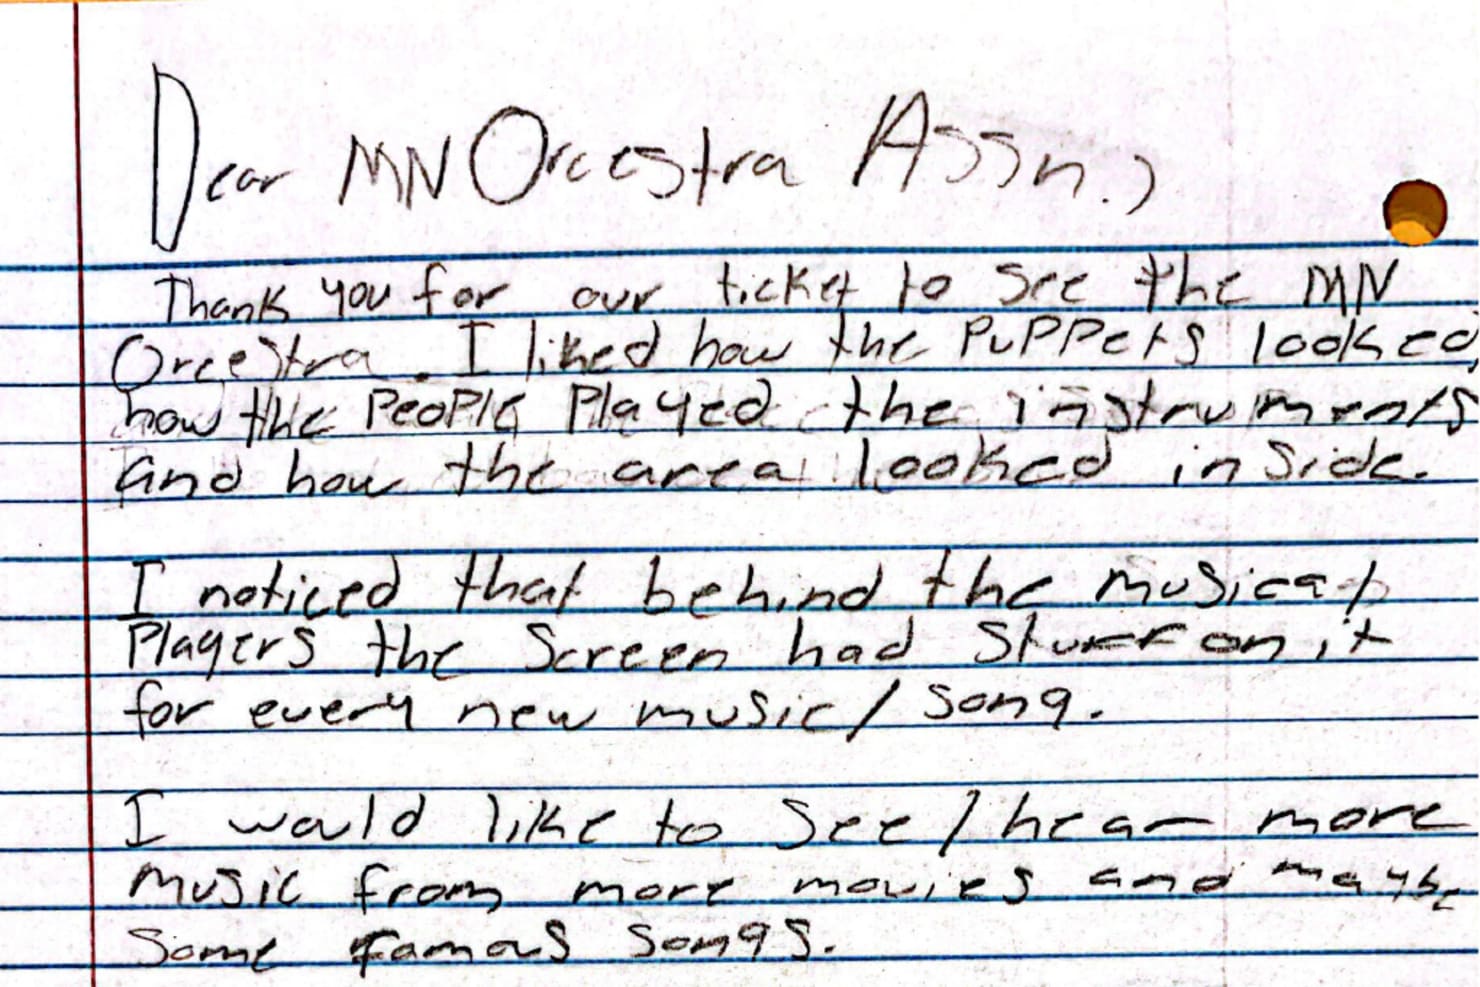 Dear MN Orcestra Assn.,
Thank you for our ticket to see the MN
Orcestra. I liked how the Puppets looked,
how the People Played the instruments
and how the area looked inside.
I noticed that behind the musical
Players the Screen had stuff on it
for every new music/song.
I would like to see/hear more
music from more movies and maybe
Some famous songs.